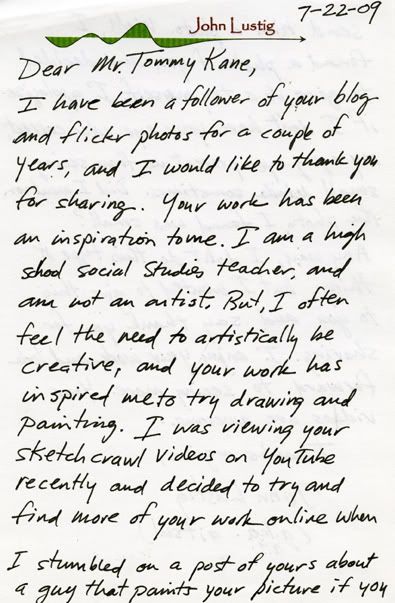 7-22-09
John Lustig
Dear Mr. Tommy Kane,
I have been a follower of your blog
and flickr photos for a couple of
years, and I would like to thank you
for sharing. Your work has been
an inspiration to me. I am a high
school Social Studies teacher, and
am not an artist. But, I often
feel the need to artistically be
creative, and your work has
inspired me to try drawing and
painting. I was viewing your
sketchcrawl videos on YouTube
recently and decided to try and
find more of your work online when
I stumbled on a post of yours about
a guy that paints your picture if you